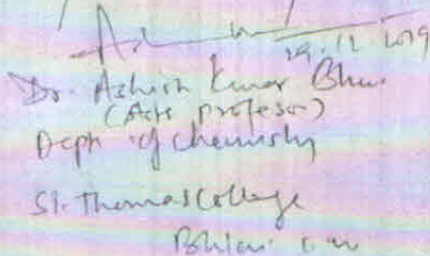 29.12.2019
Dr. Ashish Kumar
(Asst professor)
Deptt of Chemistry
St. Thomas College
Bhilai